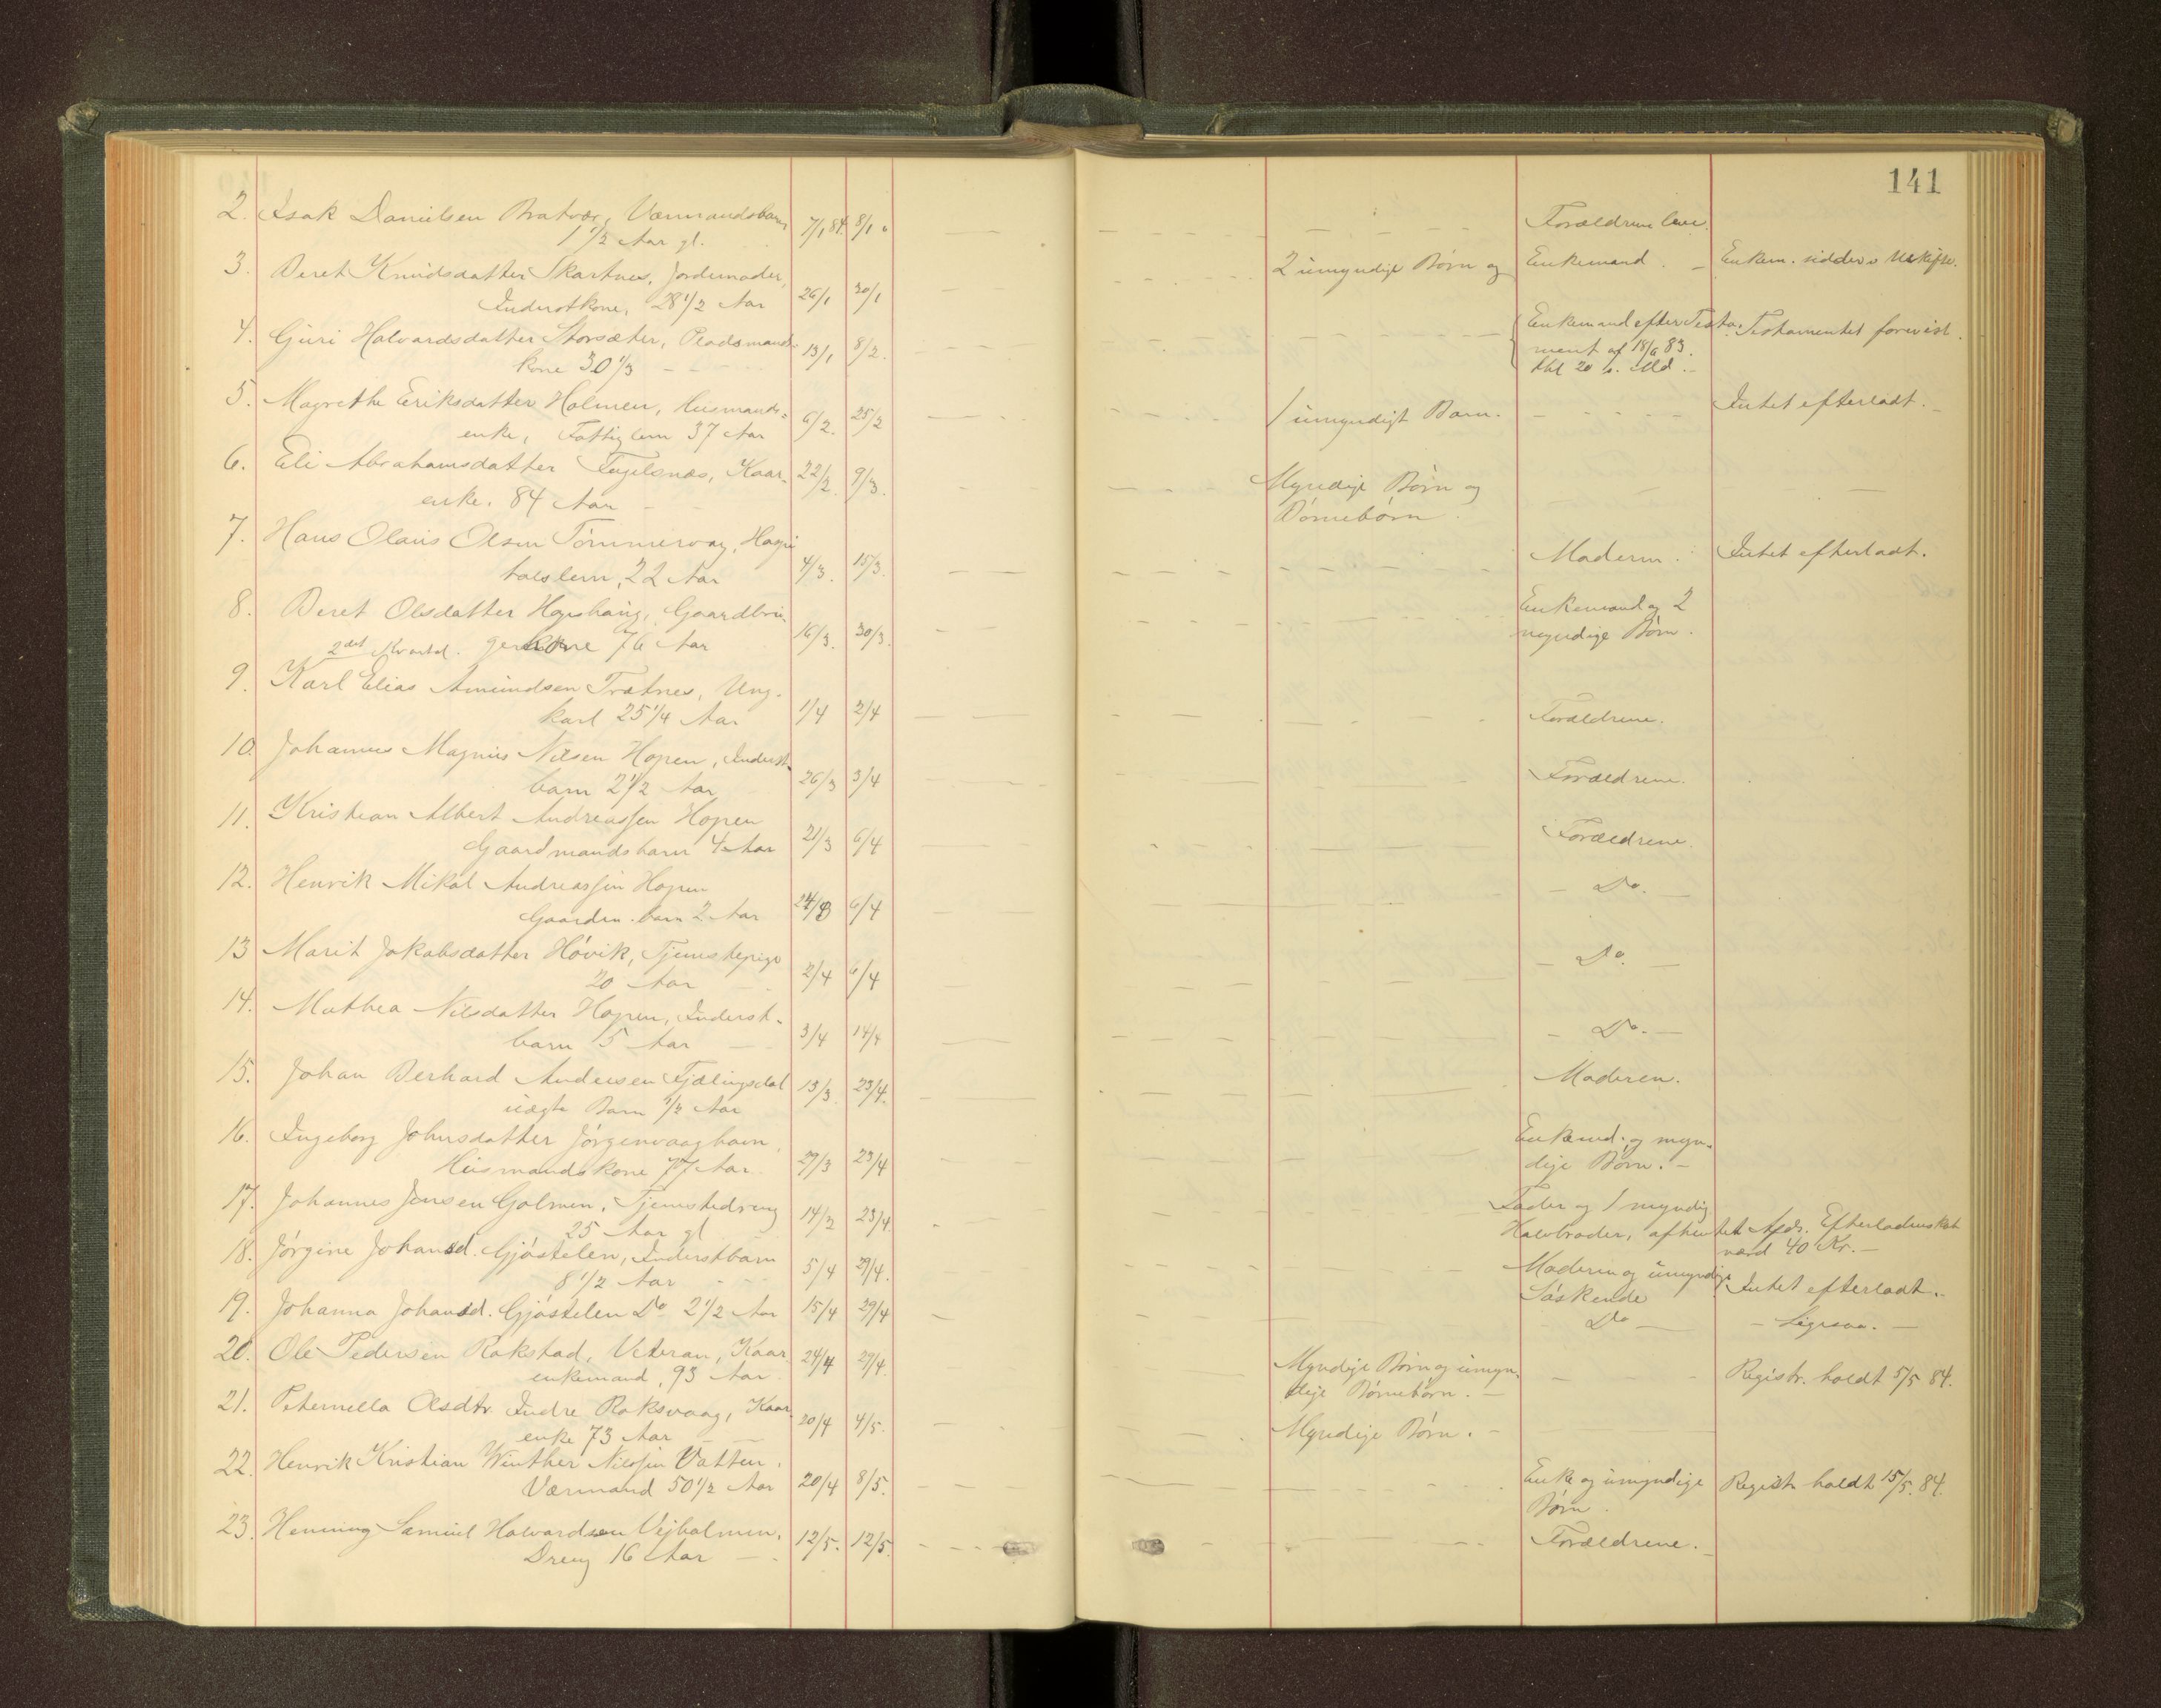 141
2. Isak Danielsen Bratvær, Værmandsbarn 7/1 84. 8/1 Forældrene leve.
1 1/2 Aar gl.
3. Beret Knudsdatter Skartnes, Jordemoder, 26/1 30/1 2 umyndige Børn og Enkemand. - Enkem. sidder i Uskifte.
Inderstkone, 28 1/2 Aar
4. Guri Halvardsdatter Storsæter, Pladsmands- 13/1 8/2. Enkemand efter Testa- Testamentet forevist.
kone 30 1/3 ment af 18/6 83.
5. Magrethe Eriksdatter Holmen, Husmands= 6/2. 25/2 1 umyndigt Barn. Intet efterladt.
enke, Fattiglem 37 Aar
6. Eli Abrahamsdatter Fuglsnæs, Kaar- 22/2. 9/3. Myndige Børn og
enke. 84 Aar Børnebørn.
7. Hans Olaus Olsen Tømmervag, Hospi 4/3. 15/3. Moderen. Intet efterladt.
talslem, 22 Aar
8. Beret Olsdatter Hopshaug, Gaardbru- 16/3. 30/3. Enkemand og 2
2det Kvartal. gerkone 76 Aar myndige Børn.
9. Karl Elias Amundsen Trætnes, Ung- 1/4 2/4 Forældrene.
karl 25 1/4 Aar
10. Johannes Magnus Nilsen Hopen, Inderst- 26/3 3/4 Forældrene.
barn 2 1/2 Aar
11. Kristian Albert Andreassen Hopen 21/3 6/4 Forældrene.
Gaardmandsbarn 4 Aar
12. Henrik Mikal Andreassen Hopen 24/3 6/4 - Do. -
Gaardm. barn 2 Aar
13 Marit Jakobsdatter Høvik, Tjenestepige 2/4 6/4 - Do. -
20 Aar
14. Mathea Nilsdatter Hopen, Inderst- 3/4 14/4 - Do. -
barn 5 Aar
15. Johan Berhard Andersen Fjælingsdal 13/3. 23/4. Moderen.
uægte Barn 1/2 Aar
16. Ingeborg Johnsdatter Jørgenvaaghavn, 29/3 23/4 Enkemd. og myn-
Husmandskone 77 Aar. dige Børn. -
17. Johannes Jensen Golmen, Tjenestedreng 14/2 23/4 Fader og 1 myndig
25 Aar gl Halvbroder, afhentet Afds. Efterladenskab
værd 40 Kr. -
18. Jørgine Johansd. Gjøstelen, Inderstbarn 5/4 29/4. Moderen og umyndige Intet efterladt.
8 1/2 Aar Søskende
19. Johanna Johansd. Gjøstelen Do 2 1/2 Aar 15/4 29/4 Do - - Ligesaa. -
20. Ole Pedersen Rokstad, Veteran, Kaar 24/4 29/4. Myndige Børn og umyn- Registr. holdt 5/5 84.
enkemand, 93 Aar dige Børnebørn. -
21. Peternella Olsdtr Indre Roksvaag, Kaar- 20/4 4/5. Myndige Børn. -
enke 73 Aar
22. Henrik Kristian Winther Nilssen Vatten. 20/4 8/5. Enke og umyndige Registr holdt 15/5. 84.
Værmand 50 1/2 Aar Børn.
23. Henning Samuel Halvardsen Vejholmen. 12/5. 12/5. Forældrene. -
Dreng 16 Aar